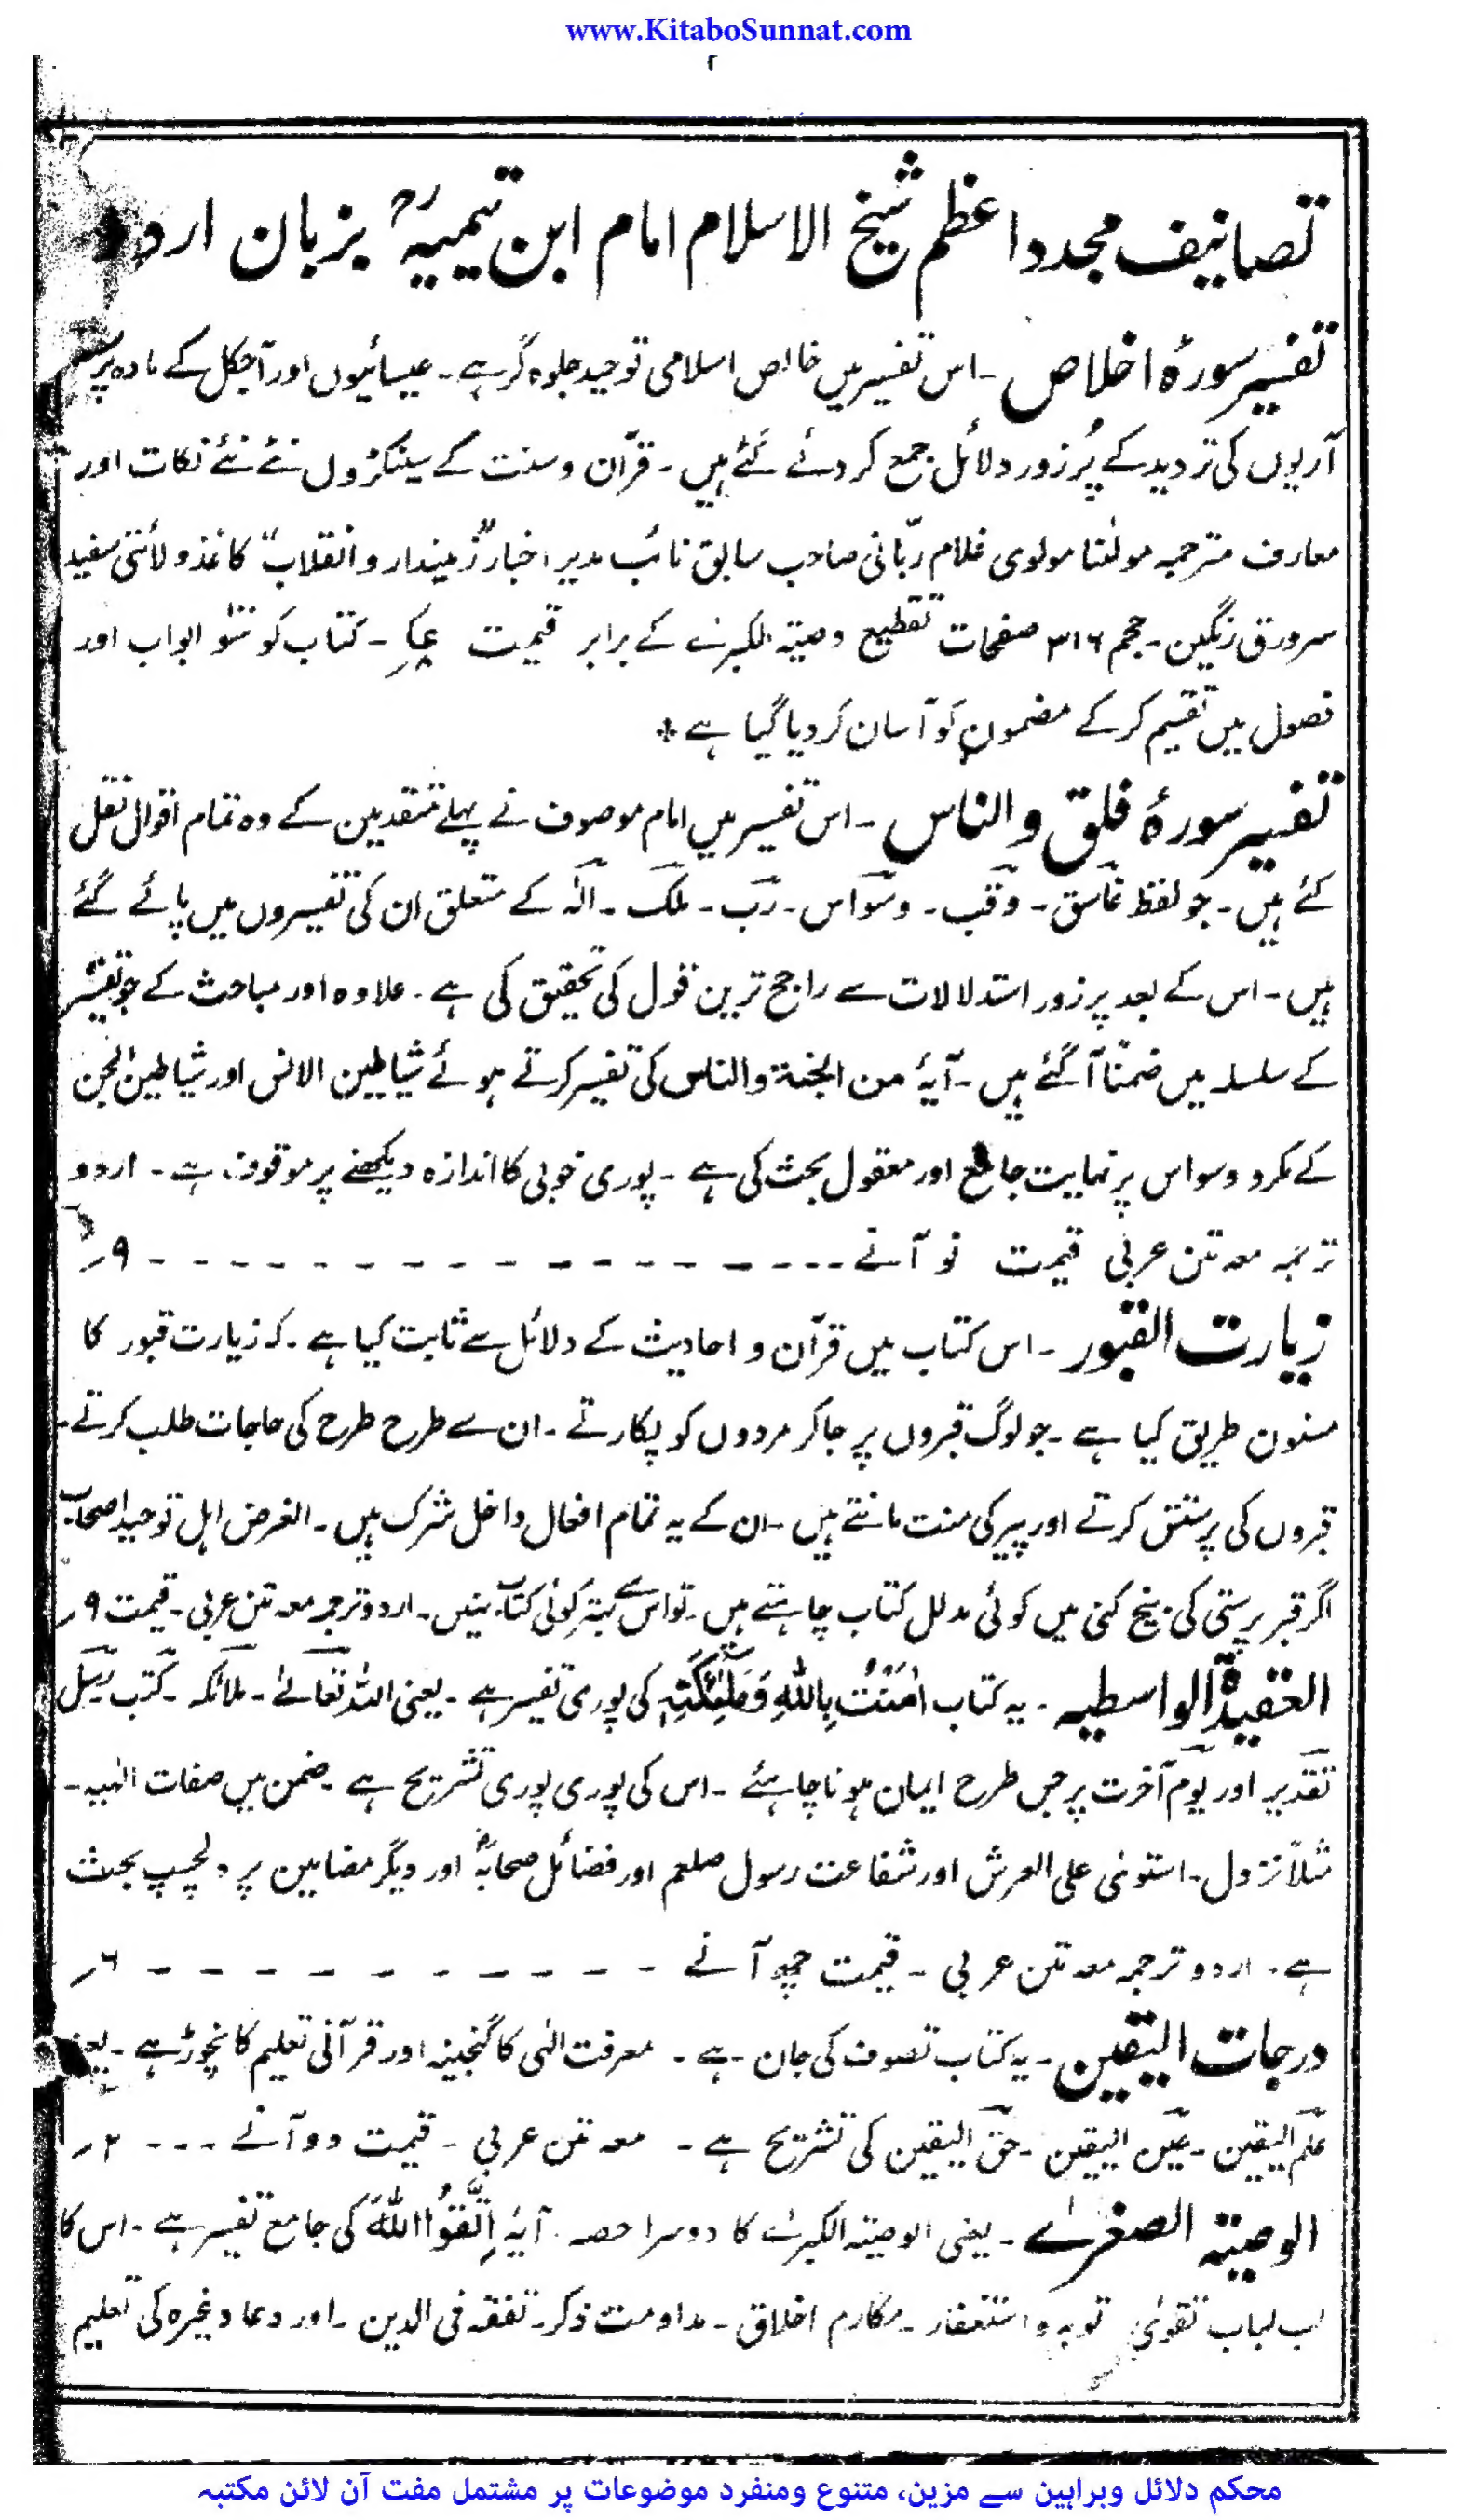 www.KitaboSunnat.com
۲
تصانیف مجدد اعظم شیخ الاسلام امام ابن تیمیہؒ بزبان اردو
تفسیر سورۂ اخلاص ۔ اس تفسیر میں خالص اسلامی توحید جلوہ گر ہے ۔ عیسائیوں اور آجکل کے مادہ پرست
آریوں کی تردید کے پُرزور دلائل جمع کر دئے گئے ہیں ۔ قرآن و سنت کے سینکڑوں نئے نئے نکات اور
معارف مترجمہ مولٰنا مولوی غلام ربّانی صاحب سابق نائب مدیر اخبار "زمیندار و انقلاب" کاغذ ولائتی سفید
سرورق رنگین ۔ حجم ۳۱۶ صفحات تقطیع وصیۃ الکبرےٰ کے برابر قیمت ۔ کتاب کو سَو ابواب اور
فصول میں تقسیم کر کے مضمون کو آسان کر دیا گیا ہے *
تفسیر سورۂ فلق والناس ۔ اس تفسیر میں امام موصوف نے پہلے متقدمین کے وہ تمام اقوال نقل
کئے ہیں ۔ جو لفظ غاسق ۔ وقب ۔ وسواس ۔ رب ۔ ملک ۔ الٰہ کے متعلق ان کی تفسیروں میں پائے گئے
ہیں ۔ اس کے بعد پرزور استدلالات سے راجح ترین قول کی تحقیق کی ہے ۔ علاوہ اور مباحث کے جو تفسیر
کے سلسلہ میں ضمناً آگئے ہیں ۔ آیۂ من الجنۃ والناس کی تفسیر کرتے ہوئے شیاطین الانس اور شیاطین الجن
کے مکرو وسواس پر نہایت جامع اور معقول بحث کی ہے ۔ پوری خوبی کا اندازہ دیکھنے پر موقوف ہے ۔ اردو
ترجمہ معہ متن عربی قیمت نو آنے ۔۔۔۔۔۔۔۔۔۔۔۔۔۔۔ ۹؍
زیارت القبور ۔ اس کتاب میں قرآن و احادیث کے دلائل سے ثابت کیا ہے ۔ کہ زیارت قبور کا
مسنون طریق کیا ہے ۔ جو لوگ قبروں پر جا کر مردوں کو پکارتے ۔ ان سے طرح طرح کی حاجات طلب کرتے ۔
قبروں کی پرستش کرتے اور پیر کی منت مانتے ہیں ۔ ان کے یہ تمام افعال داخل شرک ہیں ۔ الغرض اہل توحید اصحاب
اگر قبر پرستی کی بیخ کنی میں کوئی مدلل کتاب چاہتے ہیں ۔ تو اس سے بہتر کوئی کتاب نہیں ۔ اردو ترجمہ معہ متن عربی ۔ قیمت ۹؍
العقیدۃ الواسطیہ ۔ یہ کتاب اٰمَنْتُ بِاللّٰهِ وَمَلٰٓئِکَتِہٖ کی پوری تفسیر ہے ۔ یعنی اللہ تعالےٰ ۔ ملائکہ ۔ کتب ۔ رسل
تقدیر اور یوم آخرت پر جس طرح ایمان ہونا چاہئے ۔ اس کی پوری پوری تشریح ہے ۔ ضمن میں صفات الٰہیہ ۔
مثلاً نزول ۔ استوےٰ علی العرش اور شفاعت رسول صلعم اور فضائل صحابہؓ اور دیگر مضامین پر دلچسپ بحث
ہے ۔ اردو ترجمہ معہ متن عربی ۔ قیمت چھ آنے ۔۔۔۔۔۔۔۔۔۔۔ ۶؍
درجات الیقین ۔ یہ کتاب تصوف کی جان ہے ۔ معرفت الٰہی کا گنجینہ اور قرآنی تعلیم کا نچوڑ ہے ۔ یعنی
علم الیقین ۔ عین الیقین ۔ حق الیقین کی تشریح ہے ۔ معہ متن عربی ۔ قیمت دو آنے ۔۔۔ ۲؍
الوصیۃ الصغرےٰ ۔ یعنی الوصیۃ الکبرےٰ کا دوسرا حصہ ۔ آیۂ اِتَّقُوا اللّٰہَ کی جامع تفسیر ہے ۔ اس کا
لب لباب تقویٰ توبہ و استغفار ۔ مکارم اخلاق ۔ مداومت ذکر ۔ تفقہ فی الدین ۔ اور دعا وغیرہ کی تعلیم
محکم دلائل وبراہین سے مزین، متنوع ومنفرد موضوعات پر مشتمل مفت آن لائن مکتبہ